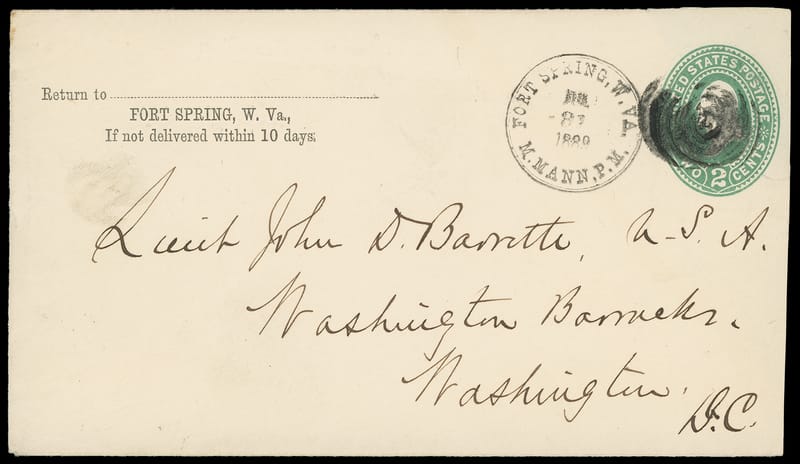 Return to
FORT SPRING, W. Va.,
If not delivered within 10 days.
FORT SPRING, W. VA.
1889
M. MANN, P.M.
UNITED STATES POSTAGE
2 CENTS
Lieut John D. Barrette, U.S.A.
Washington Barracks.
Washington.
D.C.